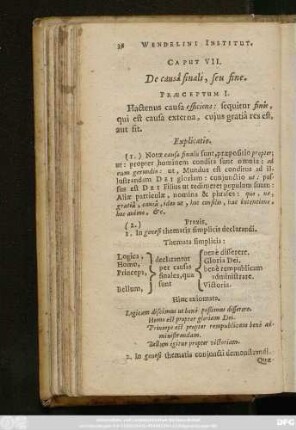 38 WENDELINI INSTITUT.
CAPUT VII.
De causâ finali, seu fine.
PRÆCEPTUM I.
Hactenus causa efficiens: sequitur finis,
qui est causa externa, cujus gratiâ res est,
aut fit.
Explicatio.
(1.) Notæ causæ finalis sunt, præpositio propter;
ut: propter hominem condita sunt omnia: ad
cum gerundio: ut, Mundus est conditus ad il-
lustrandam DEI gloriam: conjunctio ut: pas-
sus est DEI Filius ut redimeret populum suum:
Aliæ particulæ, nomina & phrases: quo, ne,
gratiâ, causâ, ideo ut, hoc consilio, hac intentione,
hoc animo, &c.
(2.) Praxis,
1. In genesi thematis simplicis declarandi.
Themata simplicia:
Logica, Homo, Princeps, Bellum, declarantur per causas finales, quæ sunt benè disserere. Gloria Dei. benè rempublicam administrare. Victoria.
Hinc axiomata.
Logicam discimus ut benè possimus disserere.
Homo est propter gloriam Dei.
Princeps est propter rempublicam benè ad-
ministrandam.
Bellum igitur propter victoriam.
2. In genesi thematis conjuncti demonstrandi.
Quæ